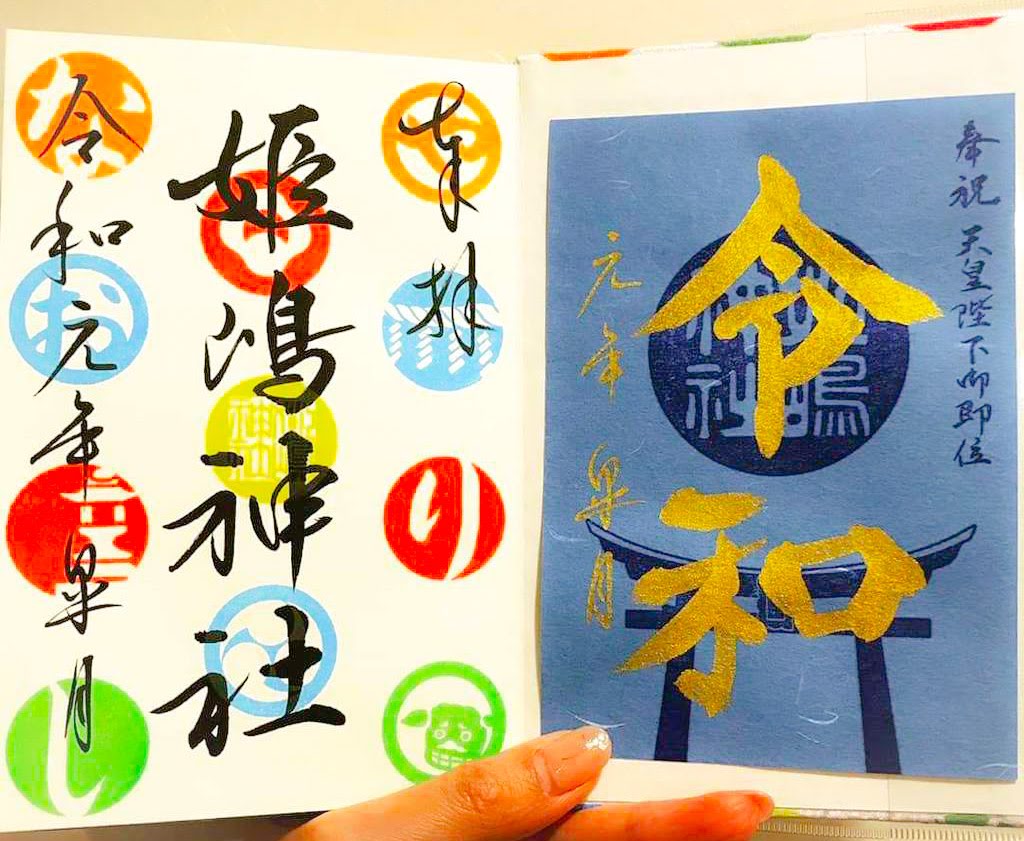 奉拝
姫嶋神社
令和元年皐月
り
お
し
奉祝 天皇陛下御即位
令和
元年 皐月
姫嶋神社